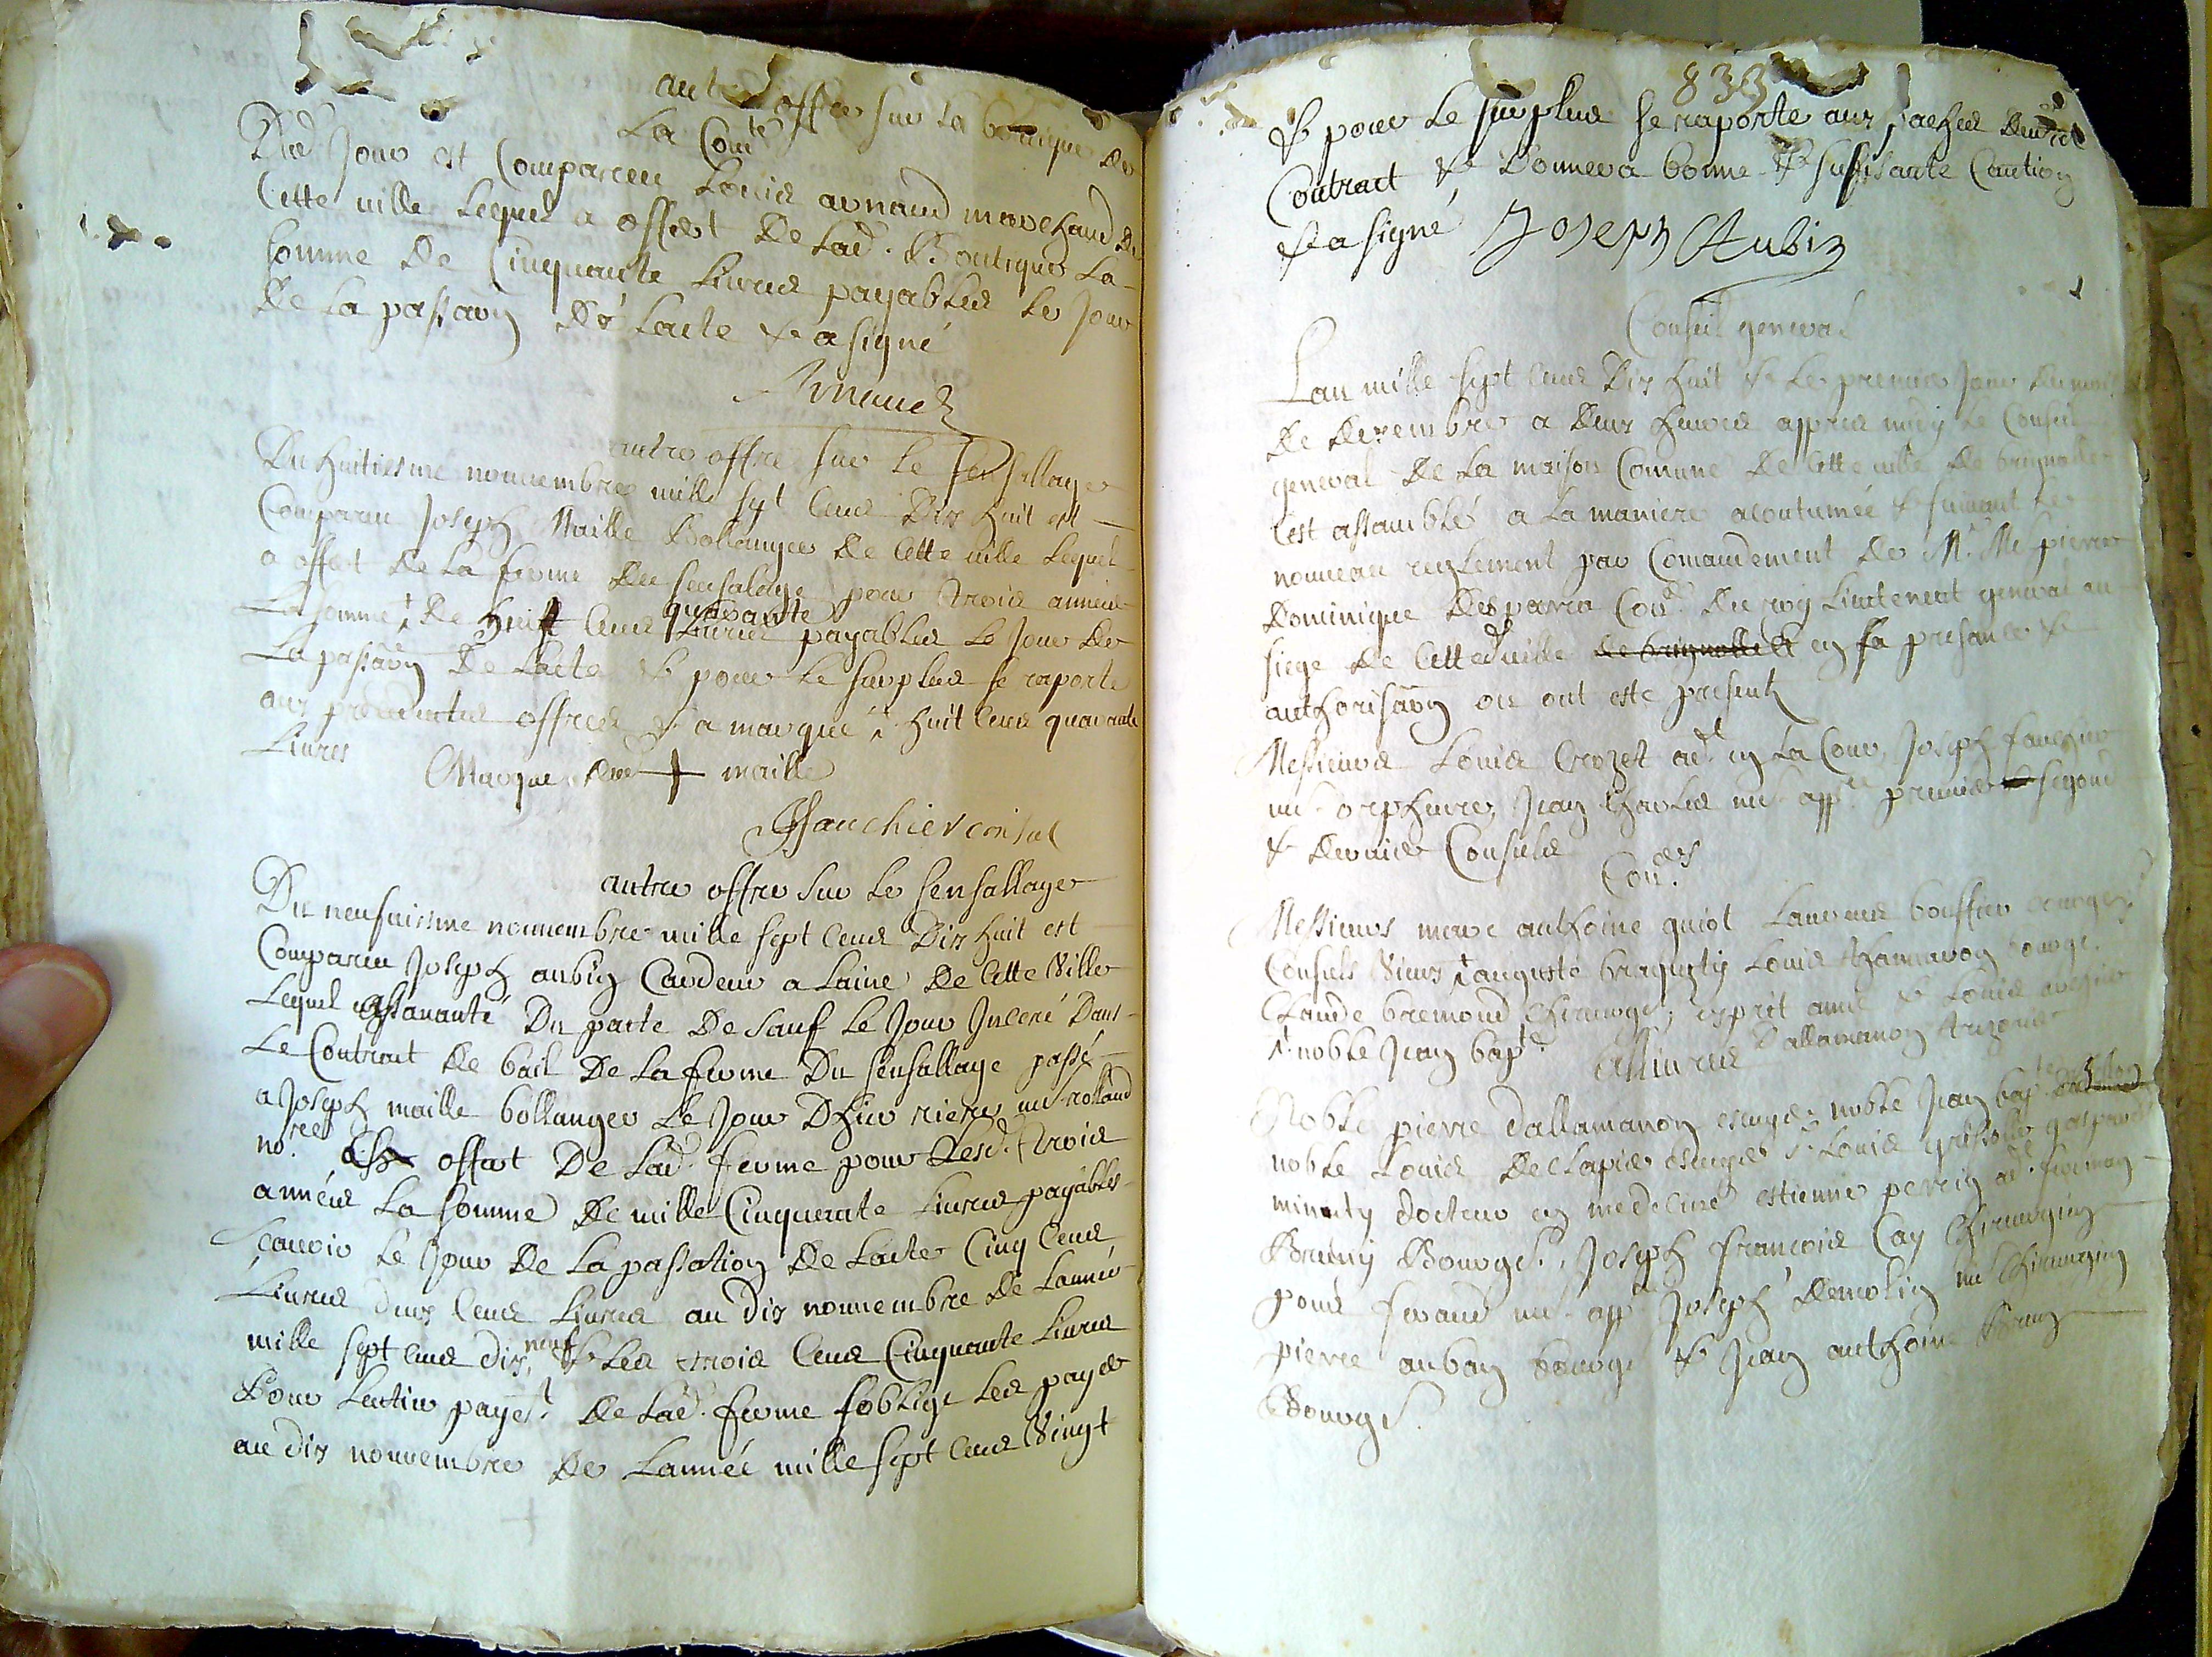 autre offre sur la boutique de
La Com.té
Dud. Jour est Compareu Louis arnaud marchand de
Cette ville Lequel a offert De Lad. Boutique La
Somme De Cinquante Livres payables Le Jour
De La passaôn De Lacte & a signé
Arnaud
autre offre sur Le sensallage
Du huitiesme nouuembre mille sept Cens Dix huit est
Comparu Joseph Maille Bollanger De Cette uille Lequel
a offert De La ferme Du sensalage pour trois années
La somme De huit Cens quarante Liures payables Le Jour De
La passaôn De Lacte & pour Le surplus se raporte
aux precedentes offres & a marqué huit Cens quarante
Liures
Marque de + maille
Ffauchier consul
autre offre sur Le sensallage
Du neufuiesme nouuembre mille sept Cens Dix huit est
Comparu Joseph aubin Cardeur a Laine De Cette Ville
Lequel Du pacte De sauf Le Jour Inceré Dans
Le Contrat De bail De La ferme Du sensallage passé
a Joseph maille bollanger Le Jour Dhier riere me rolland
no.re offert De Lad. ferme pour Lesd. trois
années La somme De mille Cinquante Liures payables
Scauoir Le Jour De La passation De Lacte Cinq Cens
Liures deux Cens Liures au dix nouuembre De Lannée
mille sept Cens dix neuf & Les trois Cens Cinquante Liures
Pour Lentier paye.t De Lad. ferme soblige Les payer
au dix nouuembre De Lannée mille sept Cens Vingt
833
& pour Le surplus se raporte aux pactes dud.
Contract & Donnera bonne & suffisante Caution
& a signé Joseph Aubin
Conseil general
Lan mille sept Cens Dix huit & Le premier Jour Du mois
De Dexembre a Deux heures appres midy Le Conseil
general De La maison Comune De Cette uille De brignolle
sest assamblé a La maniere acoutumée & suiuant Le
nouueau reglement par Comandement De M.r Me pierre
Dominique Desparra Con.r Du roy Lieutenent general au
siege De Cetted. uille de brignolle en sa presance &
authorisaôn ou ont este presents
Messieurs Louis Crozet ad.t en La Cour, Joseph fauchier
me orpheure, Jean Charles me app.re premier segond
& Dernier Consuls
Con.ers
Messieurs marc anthoine guiot Laurens bouffier bourgeo.
Consuls Vieux auguste braquety Louis Chamaron bourge.
Claude bremond Chirurgi, esprit amic & Louis archier
noble Jean bap.te Dallamanon
alliurés
Noble pierre dallamanon escuyer noble Jean bap.te
noble Louis De Clapiers escuyer s.r Louis grisolle gaspard
minuty docteur en medecine estienne perrin ad.t fermin
Bruny Bourge.s, Joseph francois Cay Chirurgien
pons feraud me app.re Joseph Demolin me Chirurgien
pierre auban bourge & Jean anthoine Brun
Bourge.s